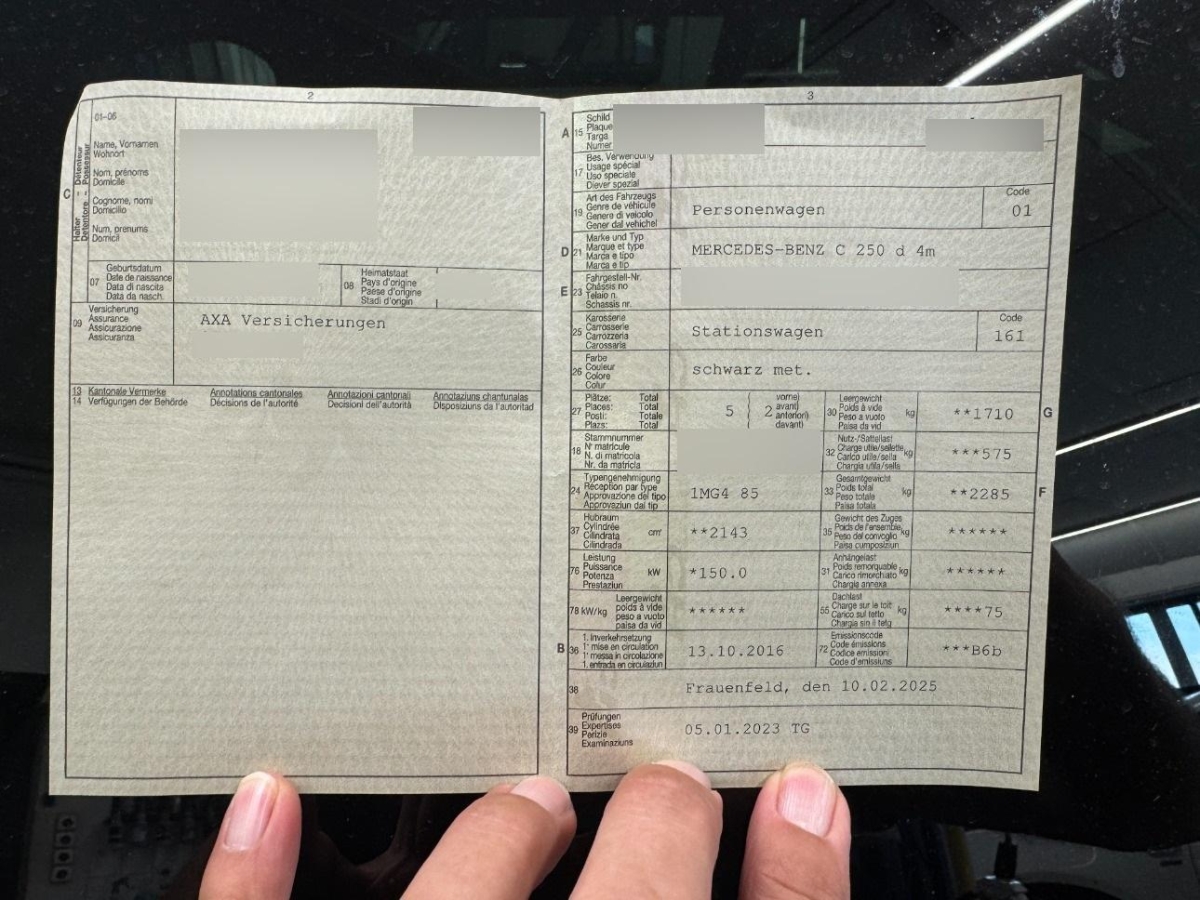 2
01-06
Halter Détenteur
Detentore Possessur
C
Name, Vornamen
Wohnort
Nom, prénoms
Domicile
Cognome, nomi
Domicilio
Num, prenums
Domicil
07
Geburtsdatum
Date de naissance
Data di nascita
Data da nasch.
08
Heimatstaat
Pays d'origine
Paese d'origine
Stadi d'origin
09
Versicherung
Assurance
Assicurazione
Assicuranza
AXA Versicherungen
13 Kantonale Vermerke Annotations cantonales Annotazioni cantonali Annotaziuns chantunalas
14 Verfügungen der Behörde Décisions de l'autorité Decisioni dell'autorità Disposiziuns da l'autoritad
3
A 15
Schild
Plaque
Targa
Numer
17
Bes. Verwendung
Usage spécial
Uso speciale
Diever spezial
19
Art des Fahrzeugs
Genre de véhicule
Genere di veicolo
Gener dal vehichel
Personenwagen
Code
01
D 21
Marke und Typ
Marque et type
Marca e tipo
Marca e tip
MERCEDES-BENZ C 250 d 4m
E 23
Fahrgestell-Nr.
Châssis no
Telaio n.
Schassis nr.
25
Karosserie
Carrosserie
Carrozzeria
Carossaria
Stationswagen
Code
161
26
Farbe
Couleur
Colore
Colur
schwarz met.
27
Plätze: Total
Places: Total
Posti: Totale
Plazs: Total
5
2
vorne
avant
anteriori
davant
30
Leergewicht
Poids à vide
Peso a vuoto
Paisa da vid
kg
**1710
G
18
Stammnummer
N° matricule
N. di matricola
Nr. da matricla
32
Nutz-/Sattellast
Charge utile/sellette
Carico utile/sella
Chargia utila/sella
kg
***575
24
Typengenehmigung
Réception par type
Approvazione del tipo
Approvaziun dal tip
1MG4 85
33
Gesamtgewicht
Poids total
Peso totale
Paisa totala
kg
**2285
F
37
Hubraum
Cylindrée
Cilindrata
Cilindrada
cm³
**2143
35
Gewicht des Zuges
Poids de l'ensemble
Peso del convoglio
Paisa cumposiziun
kg
******
76
Leistung
Puissance
Potenza
Prestaziun
kW
*150.0
31
Anhängelast
Poids remorquable
Carico rimorchiato
Chargia annexa
kg
******
78 kW/kg
Leergewicht
poids à vide
peso a vuoto
paisa da vid
******
55
Dachlast
Charge sur le toit
Carico sul tetto
Chargia sin il tetg
kg
****75
B 36
1. Inverkehrsetzung
1re mise en circulation
1a messa in circolazione
1. entrada en circulaziun
13.10.2016
72
Emissionscode
Code émissions
Codice emissioni
Code d'emissiuns
***B6b
38
Frauenfeld, den 10.02.2025
39
Prüfungen
Expertises
Perizie
Examinaziuns
05.01.2023 TG